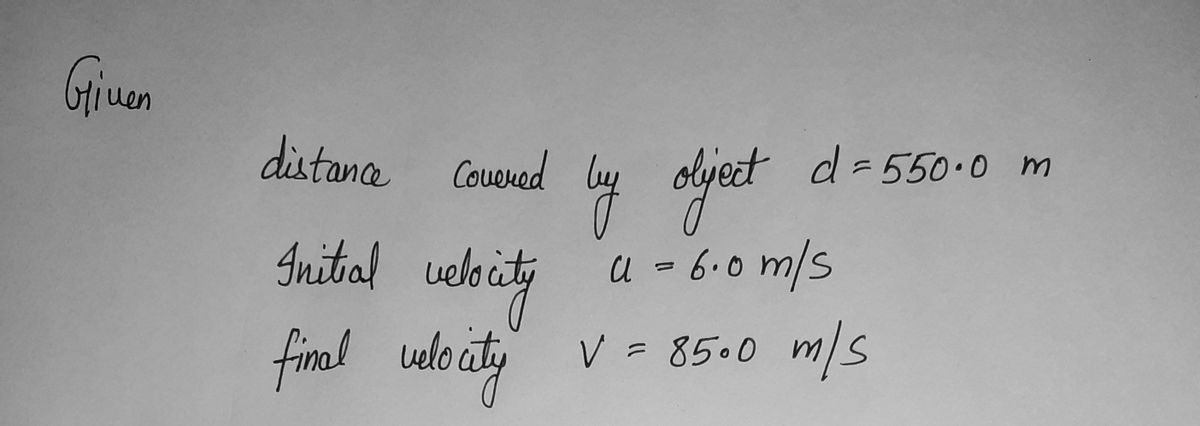 Given
distance covered by object d = 550.0 m
Initial velocity u = 6.0 m/s
final velocity v = 85.0 m/s